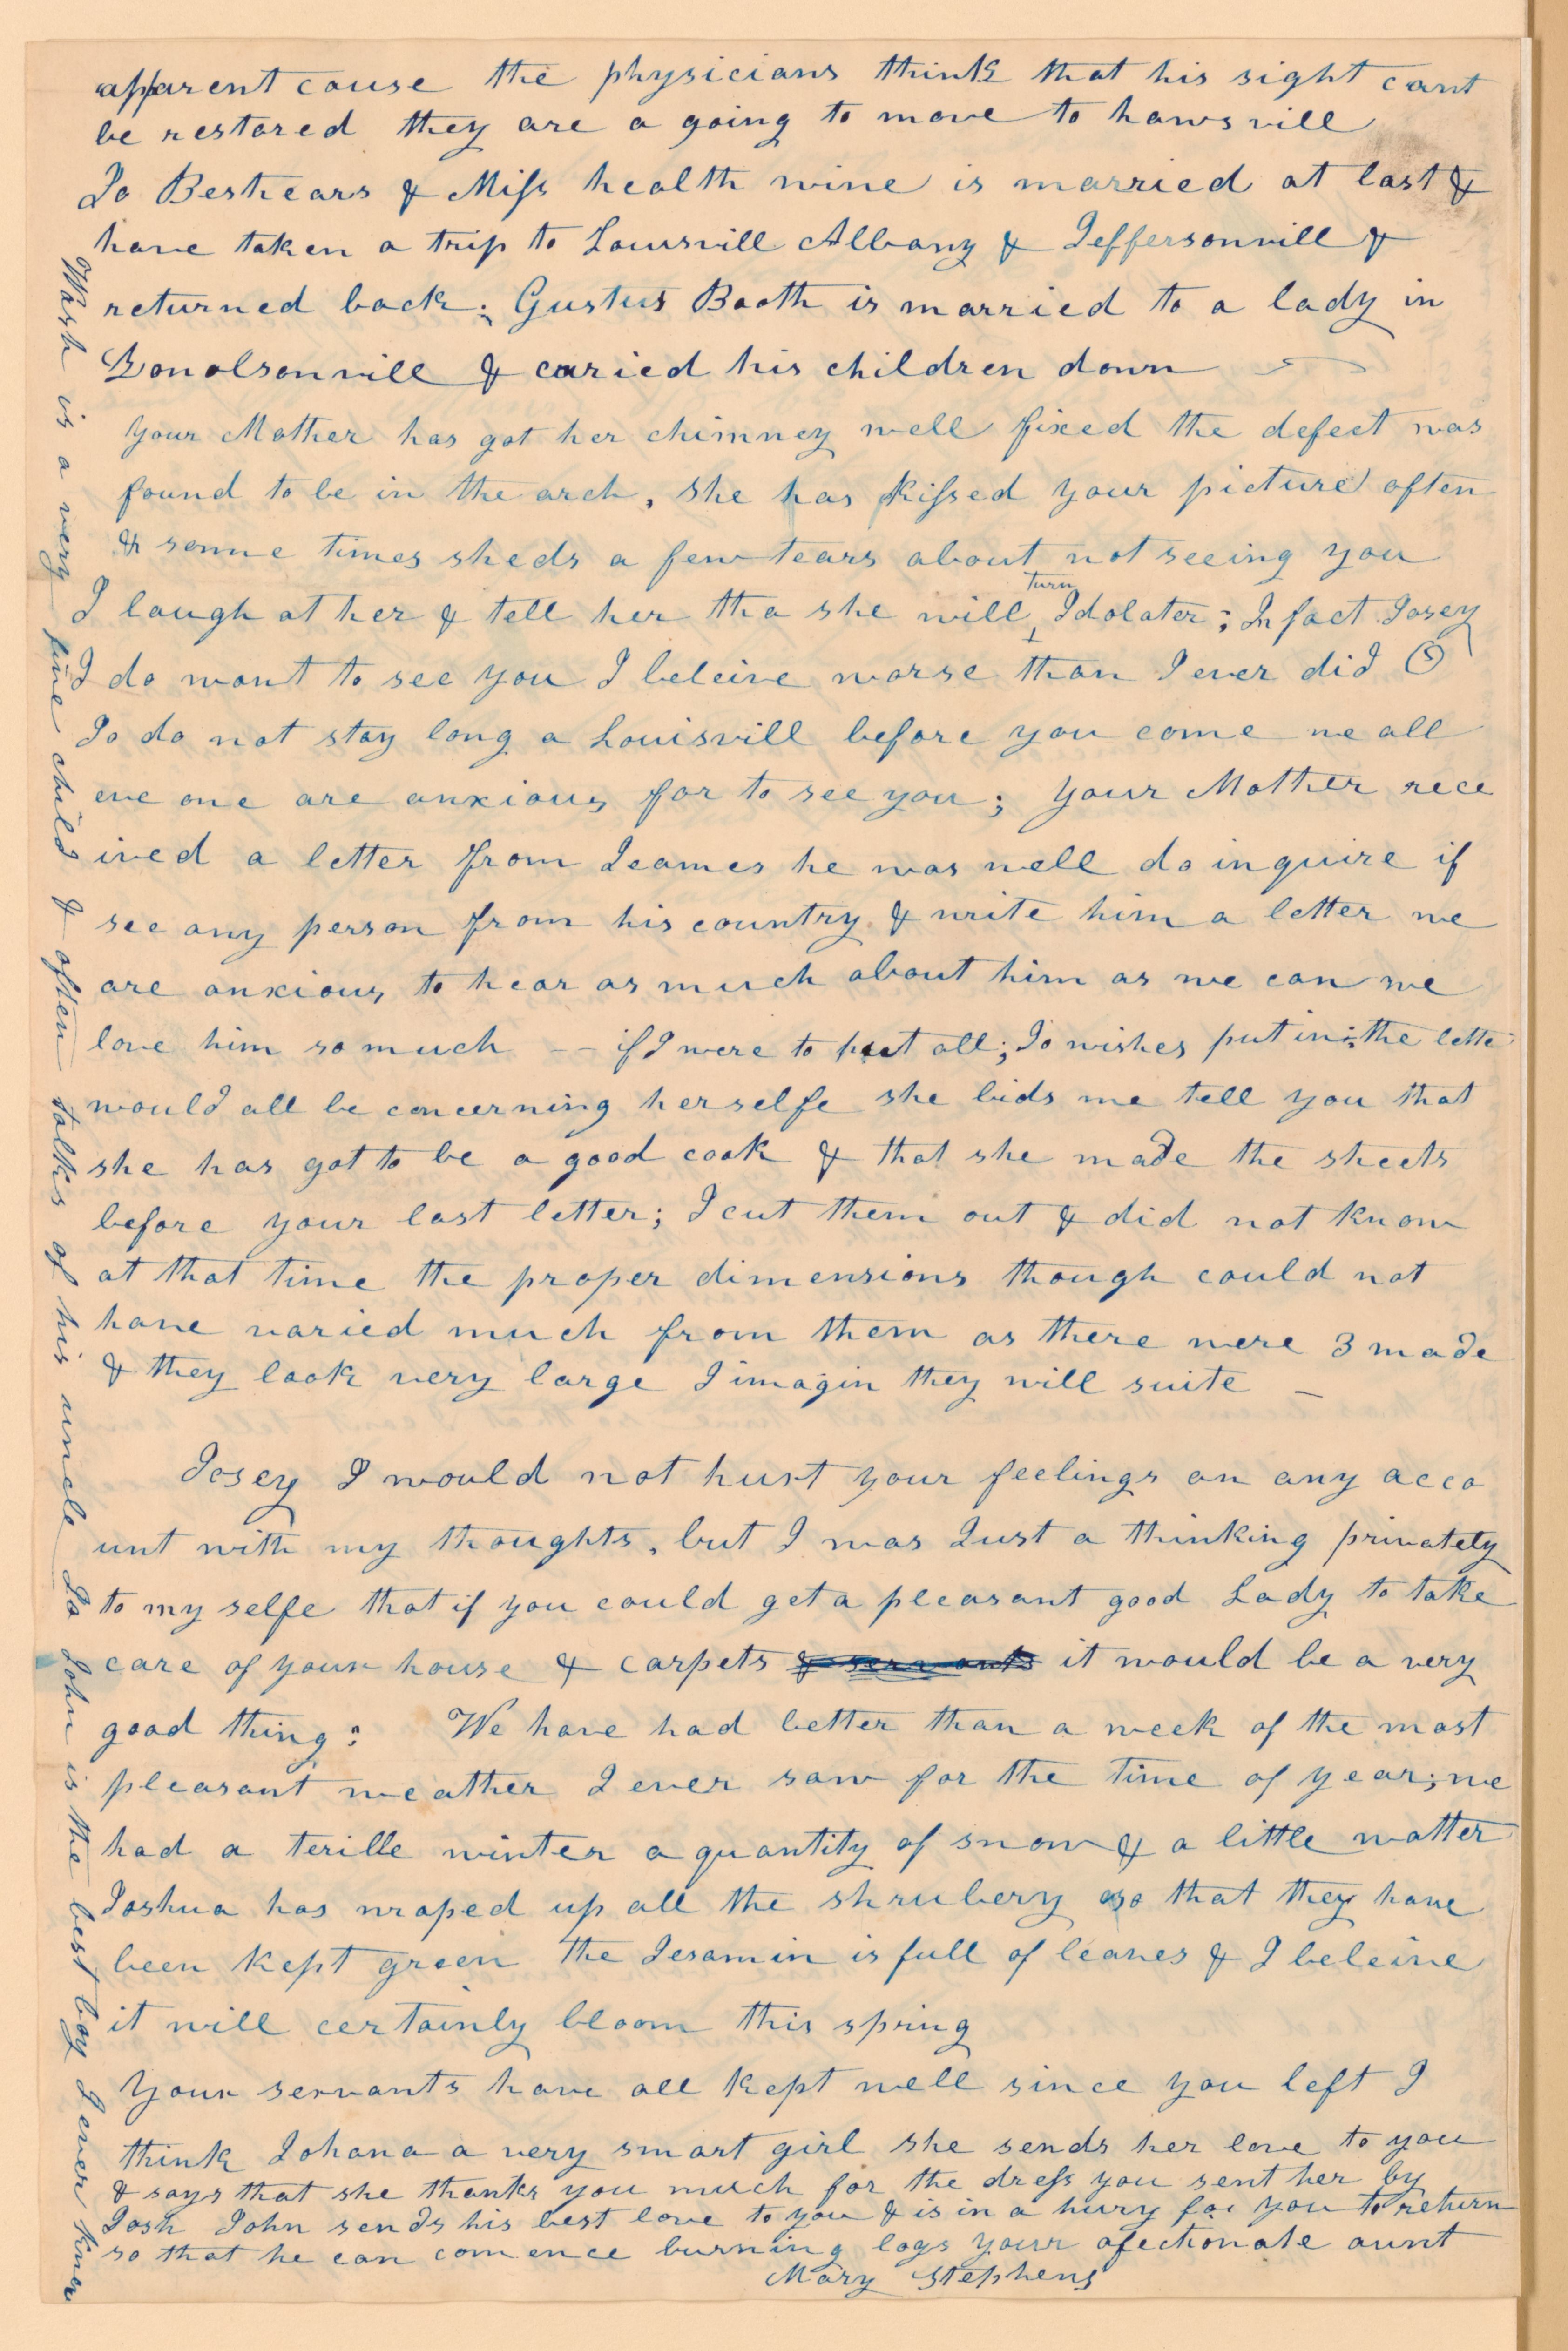 apparent cause the physicians think that his sight cant
be restored they are a going to move to hawsvill
Jo Beshears & Miss health wine is married at last &
have taken a trip to Louisvill Albany & Jeffersonvill &
returned back; Gustus Booth is married to a lady in
Donolsonvill & caried his children down
your Mother has got her chimney well fixed the defect was
found to be in the arch, she has kissed your picture often
& some times sheds a few tears about not seeing you
I laugh at her & tell her tha she will turn Idolater; In fact Josey
I do want to see you I beleive worse than I ever did
Jo do not stay long a Louisvill before you come we all
eve one are anxious for to see you; your Mother rece
ived a letter from Jeames he was well do inquire if
see any person from his country & write him a letter we
are anxious to hear as much about him as we can we
love him so much — if I were to put all; Jo wishes put in; the lette
would all be concerning herselfe she bids me tell you that
she has got to be a good cook & that she made the sheets
before your last letter; I cut them out & did not know
at that time the proper dimensions though could not
have varied much from them as there were 3 made
& they look very large I imagin they will suite —
Josey I would not hurt your feelings on any acco
unt with my thoughts, but I was Just a thinking privately
to my selfe that if you could get a pleasant good Lady to take
care of your house & carpets & servants it would be a very
good thing: We have had better than a week of the most
pleasant weather I ever saw for the time of year; we
had a terille winter a quantity of snow & a little watter
Joshua has wraped up all the shrubery so that they have
been kept green the Jesamin is full of leaves & I beleive
it will certainly bloom this spring
Your servants have all kept well since you left I
think Johana a very smart girl she sends her love to you
& says that she thanks you much for the dress you sent her by
Josh John sends his best love to you & is in a hury for you to return
so that he can comence burning logs your afectionate aunt
Mary Stephens
Wash is a very fine child & often talks of his uncle Jo John is the best boy I ever knew